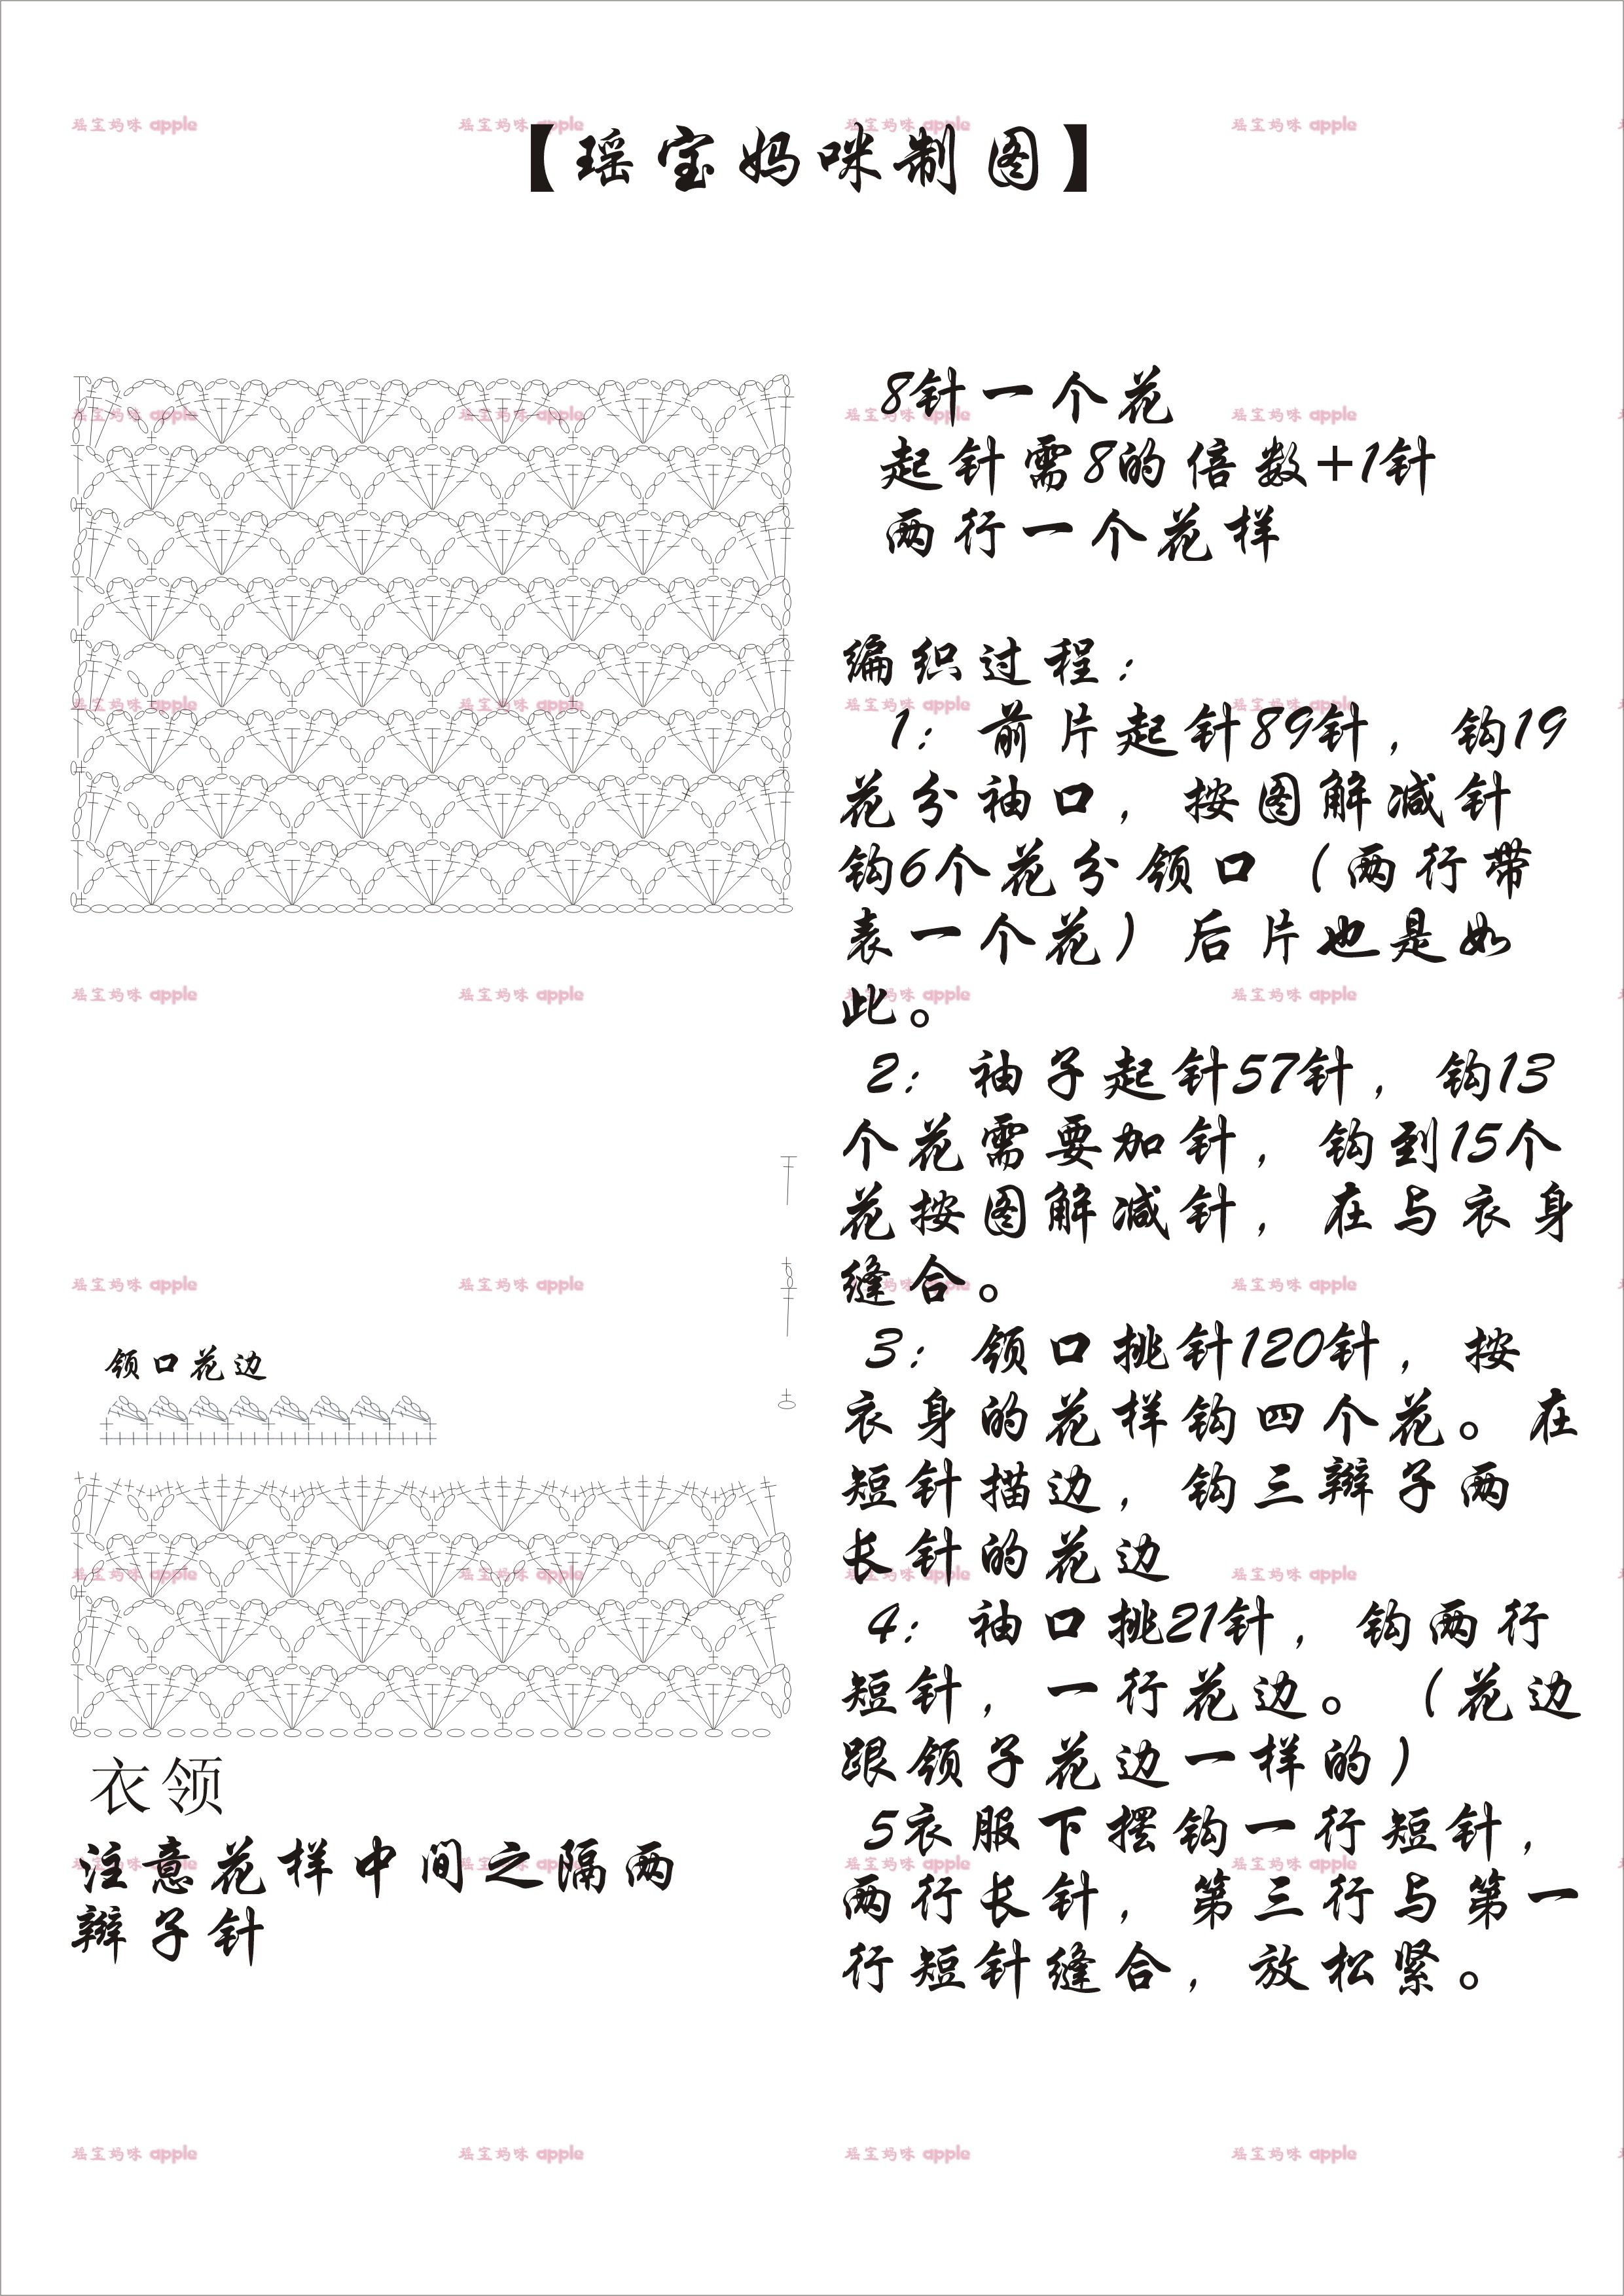 【瑶宝妈咪制图】
8针一个花
起针需8的倍数+1针
两行一个花样
编织过程：
1：前片起针89针，钩19
花分袖口，按图解减针
钩6个花分领口（两行带
表一个花）后片也是如
此。
2：袖子起针57针，钩13
个花需要加针，钩到15个
花按图解减针，在与衣身
缝合。
3：领口挑针120针，按
衣身的花样钩四个花。在
短针描边，钩三辫子两
长针的花边
4：袖口挑21针，钩两行
短针，一行花边。（花边
跟领子花边一样的）
5衣服下摆钩一行短针，
两行长针，第三行与第一
行短针缝合，放松紧。
领口花边
衣领
注意花样中间之隔两
辫子针
瑶宝妈咪 apple